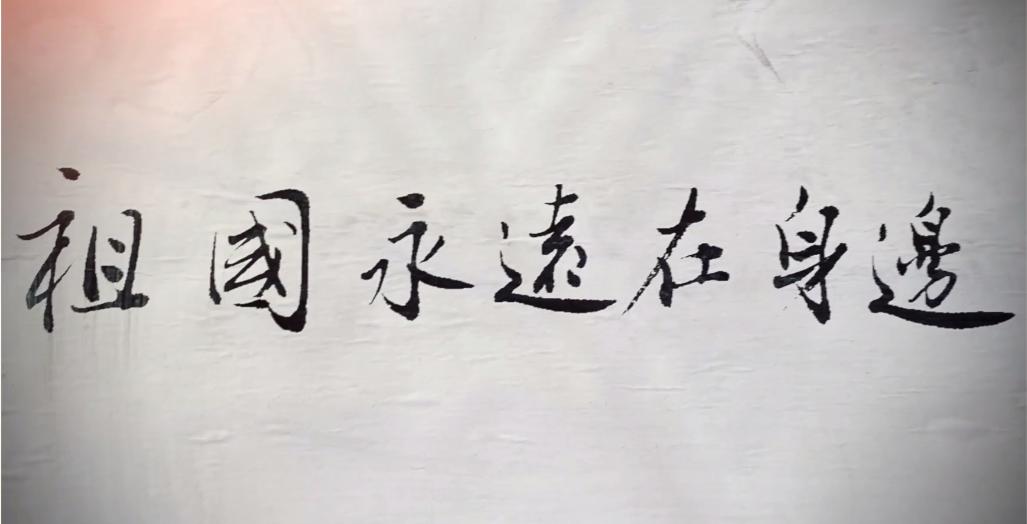 祖國永遠在身邊